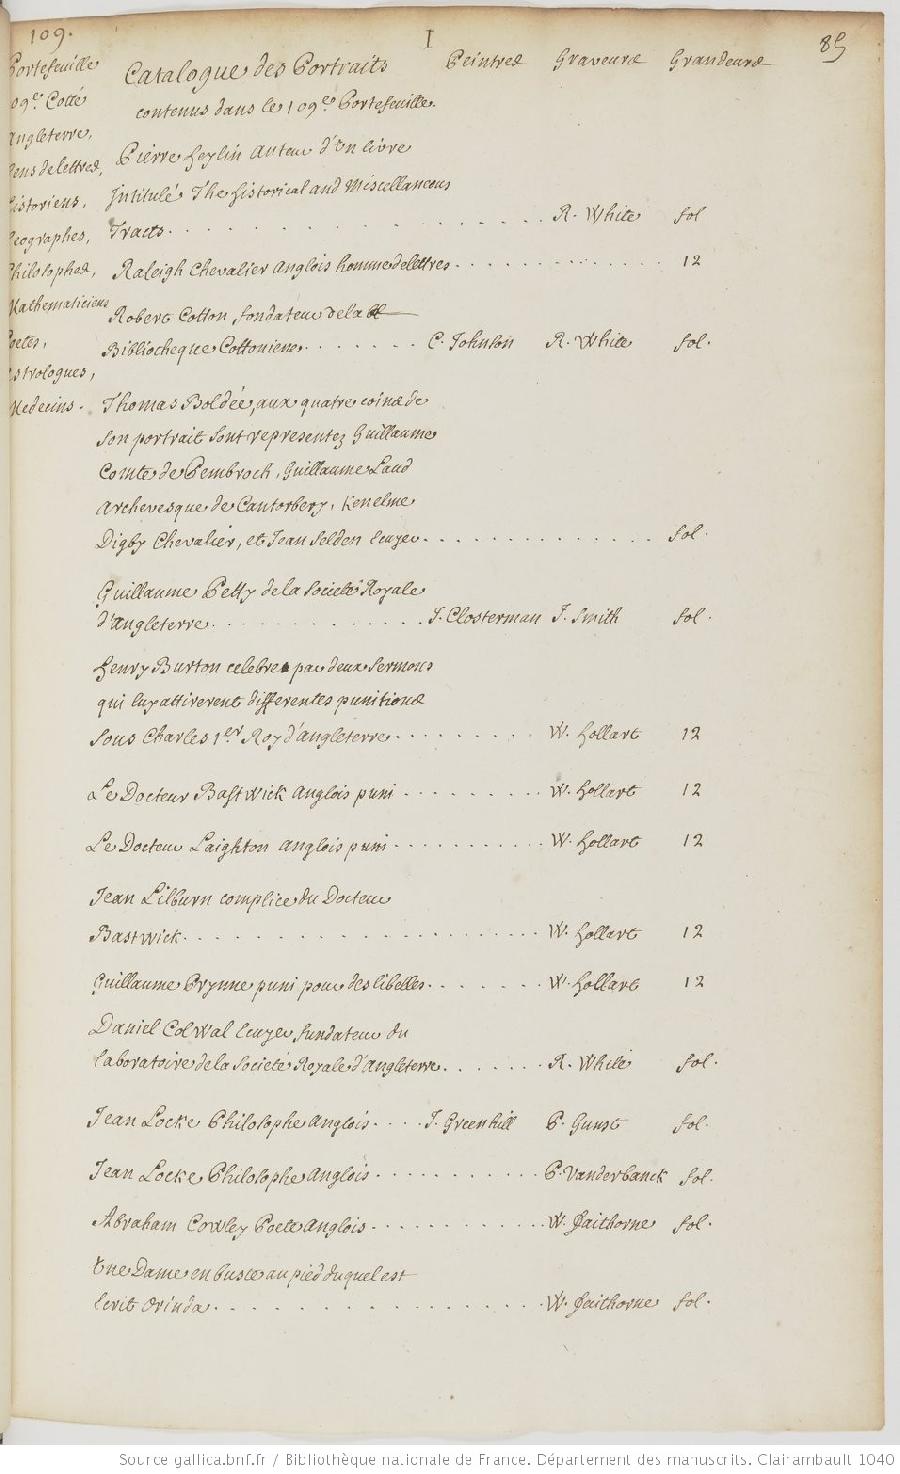 109.
I
85
Portefeuille
109e. Cotté
Angleterre,
Gens de lettres,
Historiens,
Geographes,
Philosophes,
Mathematiciens
Poetes,
Astrologues,
Medecins.
Catalogue des Portraits Peintres Graveurs Grandeurs
contenus dans le 109e. Portefeuille.
Pierre Heylin Auteur d'un livre
Intitulé The historical and Miscellaneous
Tracts. R. White fol
Raleigh Chevalier Anglois homme de lettres. 12
Robert Cotton, fondateur de la
Bibliotheque Cottoniene. C. Johnson R. White fol.
Thomas Boldée, aux quatre coins de
son portrait sont representez Guillaume
Comte de Pembroch, Guillaume Laud
Archevesque de Cantorbery, Kenelme
Digby Chevalier, et Jean Selden Ecuyer. fol.
Guillaume Petty de la Societé Royale
d'Angleterre. J. Closterman J. Smith fol.
Henry Burton celebre par deux Sermons
qui luy attirerent differentes punitions
sous Charles 1er. Roy d'Angleterre. W. Hollart 12
Le Docteur Bastwick Anglois puni W. Hollart 12
Le Docteur Laighton Anglois puni. W. Hollart 12
Jean Lilburn complice du Docteur
Bastwick. W. Hollart 12
Guillaume Prynne puni pour des libelles. W. Hollart 12
Daniel Colwal Ecuyer fundateur du
Laboratoire de la Societé Royale d'Angleterre. R. White fol.
Jean Locke Philosophe Anglois. J. Greenhill P. Gunst fol.
Jean Locke Philosophe Anglois. P. Vanderbanck fol.
Abraham Cowley Poete Anglois. W. Faithorne fol.
Une Dame en buste au pied duquel est
Ecrit Orinda. W. Faithorne fol.
Source gallica.bnf.fr / Bibliothèque nationale de France. Département des manuscrits. Clairambault 1040